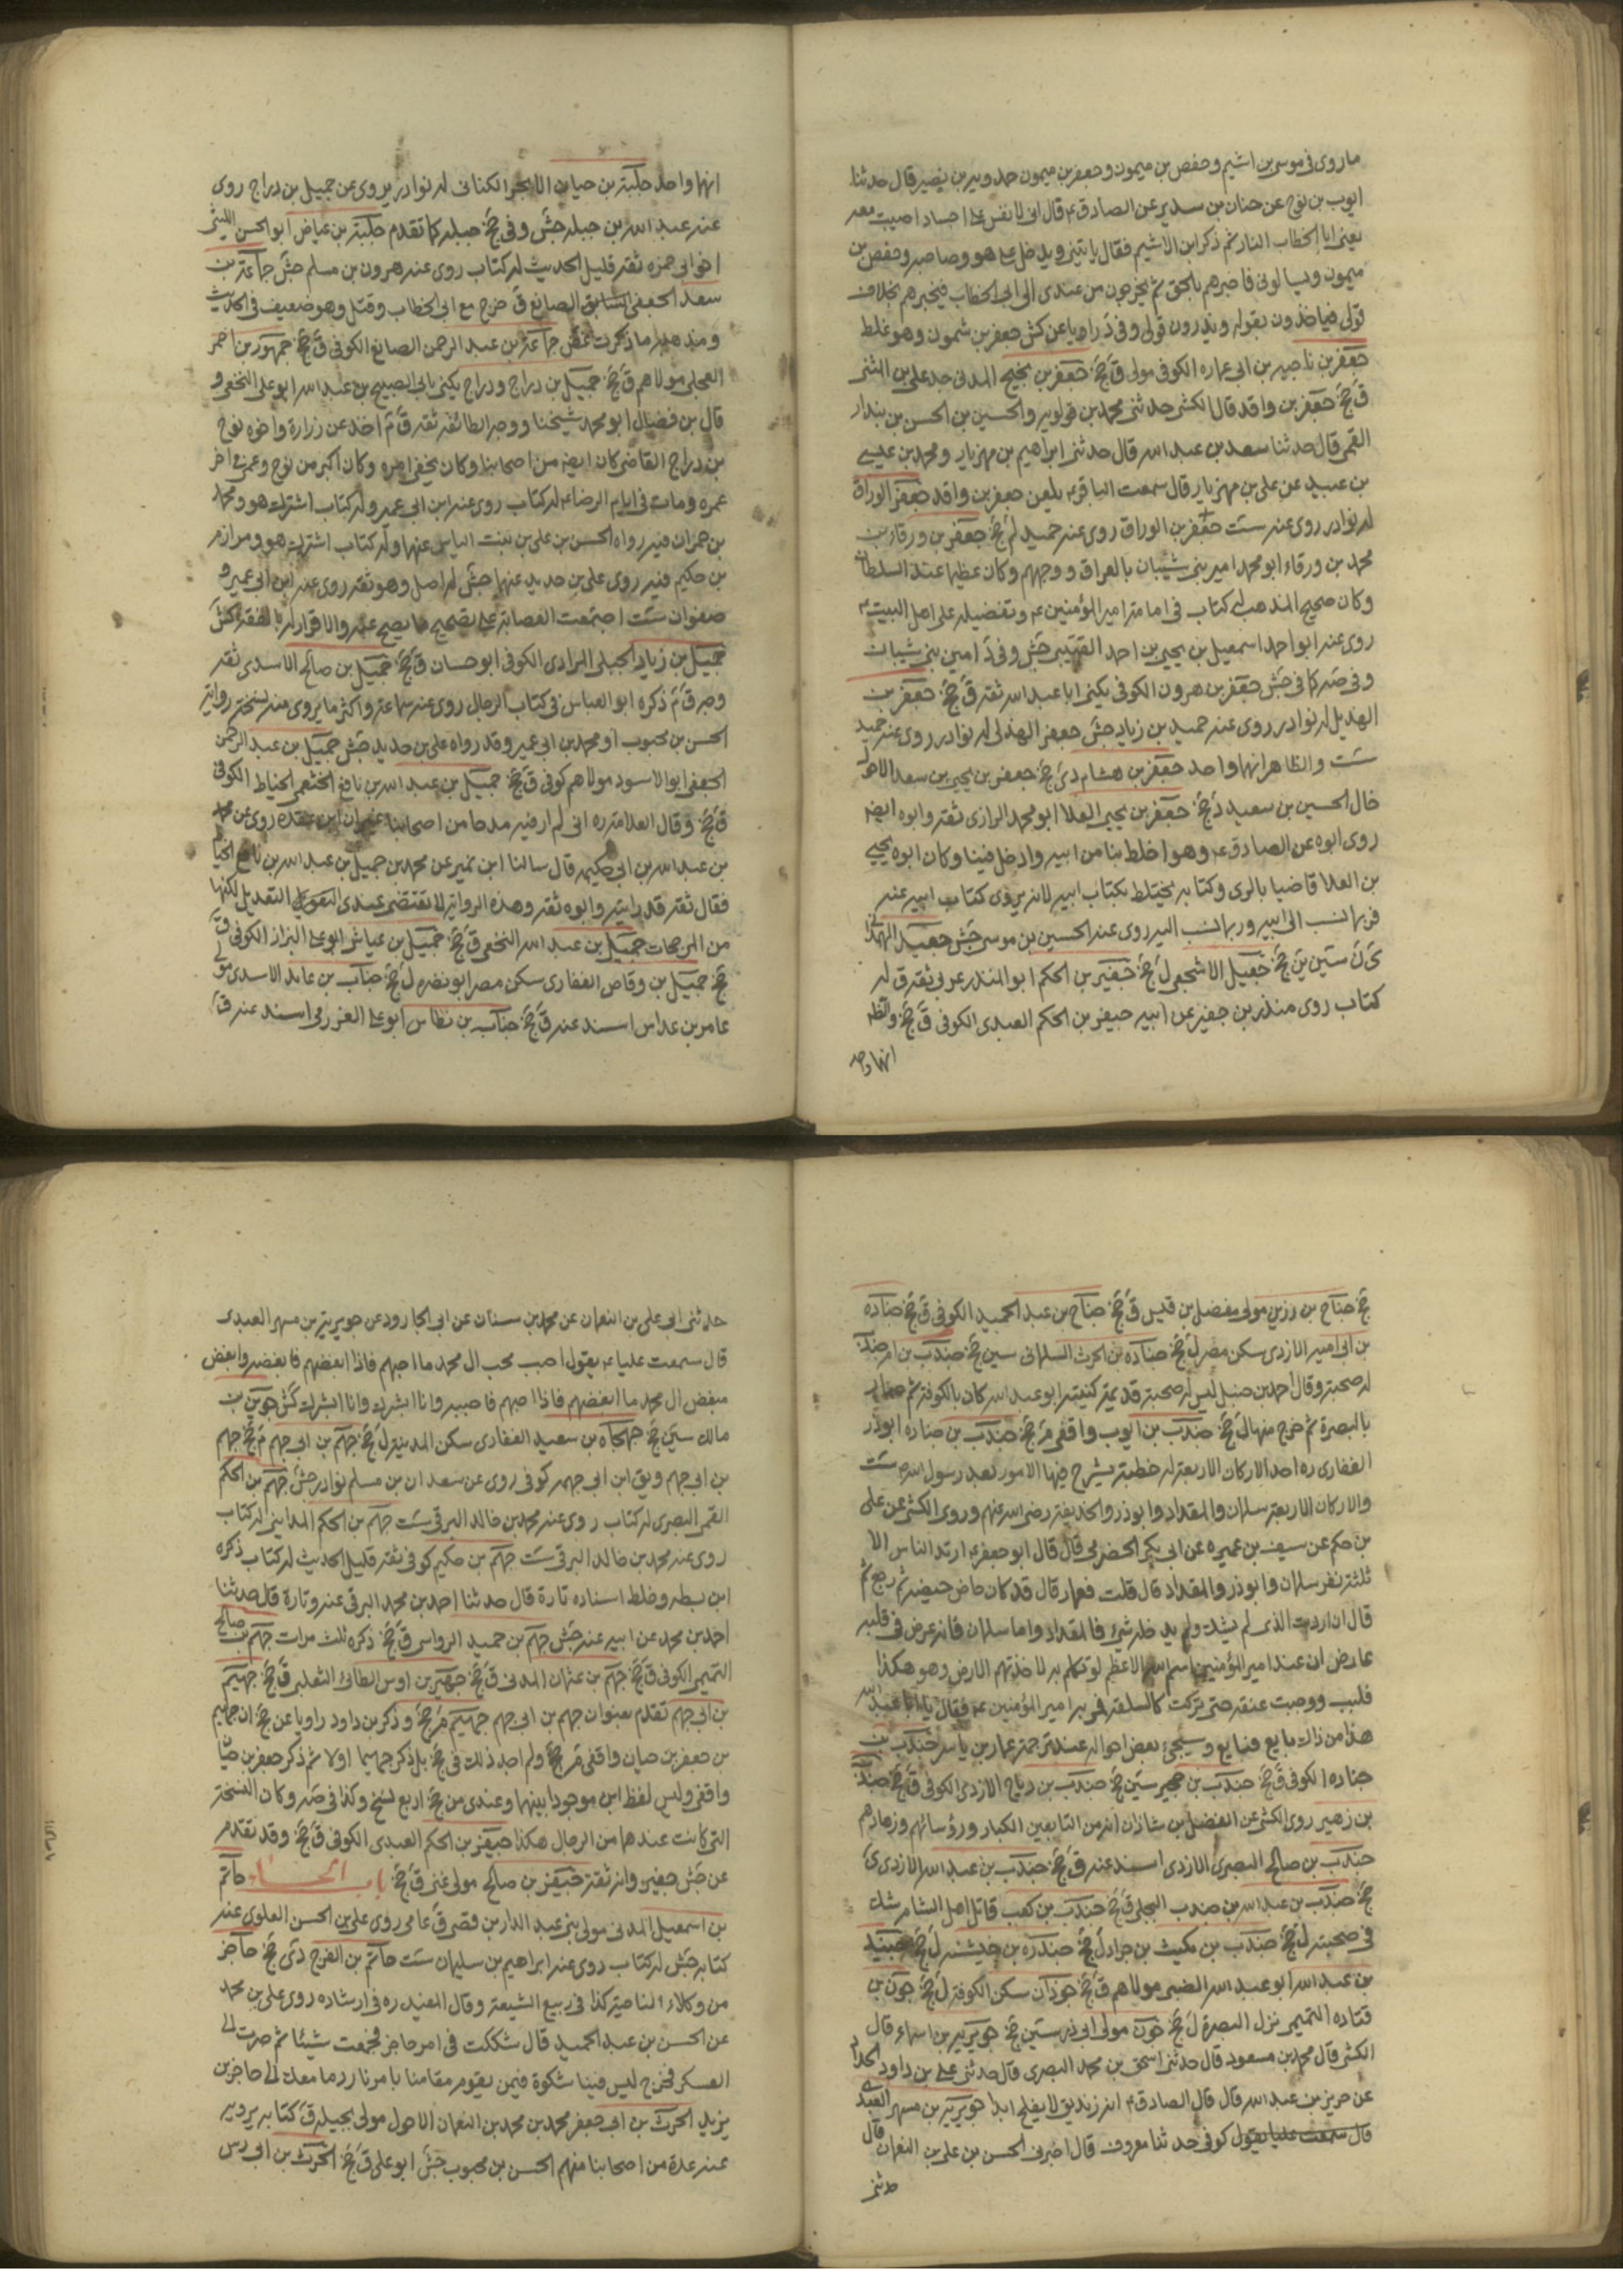 ما روى في موسى بن اشيم وحفص بن ميمون وجعفر بن ميمون حمدويه بن نصير قال حدثنا
ايوب بن نوح عن حنان بن سدير عن الصادق ع قال اني لا نفس على اجساد اصيبت معه
يعني ابا الخطاب النار ثم ذكر ابن الاشيم فقال يا تيني ويدخل على هو وصاحبه وحفص بن
ميمون ويسالوني فاخبرهم بالحق ثم يخرجون من عندى الى ابي الخطاب فيخبرهم بخلاف
قولى فياخذون بقوله ويذرون قولى وفي د راويا عن كش جعفر بن شمون وهو غلط
جعفر بن ناجيه بن ابي عماره الكوفى مولى ق جخ جعفر بن نجيح المدنى جد على بن المثنى
ق جخ جعفر بن واقد قال الكشى حدثنى محمد بن قولويه والحسين بن الحسن بن بندار
القمى قال حدثنا سعد بن عبد الله قال حدثنى ابراهيم بن مهزيار ومحمد بن عيسى
بن عبيد عن على بن مهزيار قال سمعت الباقر ع يلعن جعفر بن واقد جعفر الوراق
له نوادر روى عنه ست جعفر بن الوراق روى عنه حميد لم جخ جعفر بن ورقاء بن
محمد بن ورقاء ابو محمد امير بنى شيبان بالعراق ووجههم وكان عظيما عند السلطان
وكان صحيح المذهب له كتاب في امامة امير المؤمنين ع وتفضيله على اهل البيت ع
روى عنه ابو احمد اسمعيل بن يحيى بن احمد جش وفى د امين بنى شيبان
وفى صه كما فى جش جعفر بن هرون الكوفى يكنى ابا عبد الله ثقه ق جخ جعفر بن
الهذيل له نوادر روى عنه حميد بن زياد جش جعفر الهذلى له نوادر روى عنه حميد
ست والظاهر انهما واحد جعفر بن هشام دى جخ جعفر بن يحيى بن سعد الاحول
خال الحسين بن سعيد د جخ جعفر بن يحيى العلا ابو محمد الرازى ثقه وابوه ايضا
روى ابوه عن الصادق ع وهو اخلط بنا من ابيه وادخل فينا وكان ابوه يحيى
بن العلا قاضيا بالرى وكتابه يختلط بكتاب ابيه لانه يروى كتاب ابيه عنه
فربما نسب الى ابيه وربما نسب اليه روى عنه الحسين بن موسى جش جعيد الهمدانى
ى ن سين ين جخ جعيل الاشجعى ل جخ جفير بن الحكم ابو المنذر عربى ثقه ق له
كتاب روى منذر بن جفير عن ابيه جيفر بن الحكم العبدى الكوفى ق جخ والظ
انهما واحد
انهما واحد جلبة بن حيان الابجر الكنانى له نوادر يروى عن جميل بن دراج روى
عنه عبد الله بن جبله جش وفى جخ جبله كما تقدم جلبة بن عياض ابو الحسن الليثى
اخو ابى حمزه ثقه قليل الحديث له كتاب روى عنه هرون بن مسلم جش جماعة بن
سعد الجعفى الصايغ ق خرج مع ابى الخطاب وقتل وهو ضعيف فى الحديث
ومذهبه ما ذكرت غض جماعة بن عبد الرحمن الصايغ الكوفى ق جخ جمهور بن احمر
العجلى مولاهم ق جخ جميل بن دراج ودراج يكنى بابى الصبيح بن عبد الله ابو على النخعى و
قال بن فضال ابو محمد شيخنا ووجه الطائفه ثقه ق م اخذ عن زرارة واخوه نوح
بن دراج القاضى كان ايضا من اصحابنا وكان يخفى امره وكان اكبر من نوح وعمى فى اخر
عمره ومات فى ايام الرضا ع له كتاب روى عنه ابن ابى عمير وله كتاب اشترك هو ومحمد
بن حمران فيه رواه الحسن بن على بن بنت الياس عنهما وله كتاب اشترك هو ومرازم
بن حكيم فيه روى على بن حديد عنهما جش له اصل وهو ثقه روى عنه ابن ابى عمير و
صفوان ست اجتمعت العصابة على تصحيح ما يصح عنه والاقرار له بالفقه كش
جميل بن زياد الجبلى المرادى الكوفى ابو حسان ق جخ جميل بن صالح الاسدى ثقه
وجه ق م ذكره ابو العباس فى كتاب الرجال روى عنه سماعة واكثر ما يروى منه نسخته رواية
الحسن بن محبوب او محمد بن ابى عمير وقد رواه على بن حديد جش جميل بن عبد الرحمن
الجعفى ابو الاسود مولاهم كوفى ق جخ جميل بن عبد الله بن نافع الخثعمى الخياط الكوفى
ق جخ وقال العلامة ره انى لم ار فيه مدحا من اصحابنا غير ان ابن عقده روى عن محمد
بن عبد الله بن ابى حكيمه قال سالنا ابن نمير عن محمد بن جميل بن عبد الله بن نافع الخياط
فقال ثقه قد رايته وابوه ثقه وهذه الرواية لا تقتضى عندى التعديل لكنها
من المرجحات جميل بن عبد الله النخعى ق جخ جميل بن عياش ابو على البزاز الكوفى ق
جخ جميل بن وقاص الغفارى سكن مصر ابو نضره ل جخ جناب بن عايد الاسدى مولى
عامر بن عداس اسند عنه ق جخ جناب بن نظاس ابو على العزرمى اسند عنه ق
جخ جناح بن رزين مولى مفضل بن قيس ق جخ جناح بن عبد الحميد الكوفى ق جخ جناده
بن ابى اميه الازدى سكن مصر ل جخ جناده بن الحرث السلمانى سين جخ جندب بن ام جندب
له صحبة وقال احمد بن حنبل ليس له صحبة قديمة كنيته ابو عبد الله كان بالكوفة ثم صار
بالبصرة ثم خرج منها ل جخ جندب بن ايوب واقفى م جخ جندب بن جناده ابوذر
الغفارى ره احد الاركان الاربعة له خطبة يشرح فيها الامور بعد رسول الله ص ست
والاركان الاربعة سلمان والمقداد وابوذر والحذيفة رضى الله عنهم وروى الكشى عن على
بن حكم عن سيف بن عميره عن ابى بكر الحضرمى قال قال ابو جعفر ع ارتد الناس الا
ثلثة نفر سلمان وابوذر والمقداد قال قلت فعمار قال قد كان حاص حيصة ثم رجع ثم
قال ان اردت الذى لم يشك ولم يدخله شئ فالمقداد واما سلمان فانه عرض فى قلبه
عارض ان عند امير المؤمنين اسم الله الاعظم لو تكلم به لاخذتهم الارض وهو هكذا
فلبب ووجئت عنقه حتى تركت كالسلعة فمر به امير المؤمنين ع فقال يا ابا عبد الله
هذا من ذاك بايع فبايع وسيجئ بعض احواله عند ترجمة عمار بن ياسر جندب بن
جناده الكوفى ق جخ جندب بن حجير سين جخ جندب بن رباح الازدى الكوفى ق جخ جندب
بن زهير روى الكشى عن الفضل بن شاذان انه من التابعين الكبار ورؤسائهم وزهادهم
جندب بن صالح البصرى الازدى اسند عنه ق جخ جندب بن عبد الله الازدى ى
جخ جندب بن عبد الله بن جندب البجلى ق جخ جندب بن كعب قاتل اهل الشام شك
فى صحبته ل جخ جندب بن مكيث بن جراد ل جخ جندره بن خيشنه ل جخ جنيد
بن عبد الله ابو عبد الله الضبى مولاهم ق جخ جوذان سكن الكوفة ل جخ جون بن
قتاده التميمى نزل البصرة ل جخ جون مولى ابى ذر سين جخ جويرية بن اسماء قال
الكشى قال محمد بن مسعود قال حدثنى اسحق بن محمد البصرى قال حدثنى على بن داود الحداد
عن حريز بن عبد الله قال قال الصادق ع انه زنديق لا يفلح ابدا جويرية بن مسهر العبدى
قال سمعت عليا يقول كوفى حدثنا معروف قال اخبرنى الحسن بن على بن النعمان قال
حدثنى
حدثنى ابى على بن النعمان عن محمد بن سنان عن ابى الجارود عن جويرية بن مسهر العبدى
قال سمعت عليا ع يقول احب محب ال محمد ما احبهم فاذا ابغضهم فابغضه وابغض
مبغض ال محمد ما ابغضهم فاذا احبهم فاحببه وانا ابشرك وانا ابشرك كش جوين بن
مالك سين جخ جهجاه بن سعيد الغفارى سكن المدينة ل جخ جهم بن ابى جهم م جخ جهم
بن ابى جهم ويق ابن ابى جهمه كوفى روى عن سعدان بن مسلم نوادر جش جهم بن الحكم
القمى البصرى له كتاب روى عنه محمد بن خالد البرقى ست جهم بن الحكم المداينى له كتاب
روى عنه محمد بن خالد البرقى ست جهم بن حكيم كوفى ثقه قليل الحديث له كتاب ذكره
ابن بطه وخلط اسناده تارة قال حدثنا احمد بن محمد البرقى عنه وتارة قال حدثنا
احمد بن محمد عن ابيه عنه جش جهم بن حميد الرواسى ق جخ ذكره ثلث مرات جهم بن صالح
التميمى الكوفى ق جخ جهم بن عثمان المدنى ق جخ جهير بن اوس الطائى الثعلبى ق جخ جهيم
بن ابى جهم تقدم بعنوان جهم بن ابى جهم جهيم م جخ وذكر بن داود راويا عن جخ ان جهيم
بن جعفر بن حيان واقفى م جخ ولم اجد ذلك فى جخ بل ذكر جهيما اولا ثم ذكر جعفر بن حيان
واقفى وليس لفظ ابن موجودا بينهما وعندى من جخ اربع نسخ وكذا فى صه وكان النسخة
التى كانت عندهما من الرجال هكذا جيفر بن الحكم العبدى الكوفى ق جخ وقد تقدم
عن جش جفير وانه ثقة جيفر بن صالح مولى غنى ق جخ باب الحاء حاتم
بن اسمعيل المدنى مولى بنى عبد الدار بن قصى ق عامى روى على بن الحسن العلوى عنه
كتابه جش له كتاب روى عنه ابراهيم بن سليمان ست حاتم بن الفرج دى جخ حاجز
من وكلاء الناحية كذا فى ربيع الشيعة وقال المفيد ره فى ارشاده روى على بن محمد
عن الحسن بن عبد الحميد قال شككت فى امر حاجز فجمعت شيئا ثم صرت الى
العسكر فخرج ليس فينا شك ولا فيمن يقوم مقامنا بامرنا رد ما معك الى حاجز بن
يزيد الحرث بن ابى جعفر محمد بن محمد بن النعمان الاحول مولى بجيله ق كتابه يرويه
عنه عدة من اصحابنا منهم الحسن بن محبوب جش ابو على ق جخ الحرث بن ابى رسن